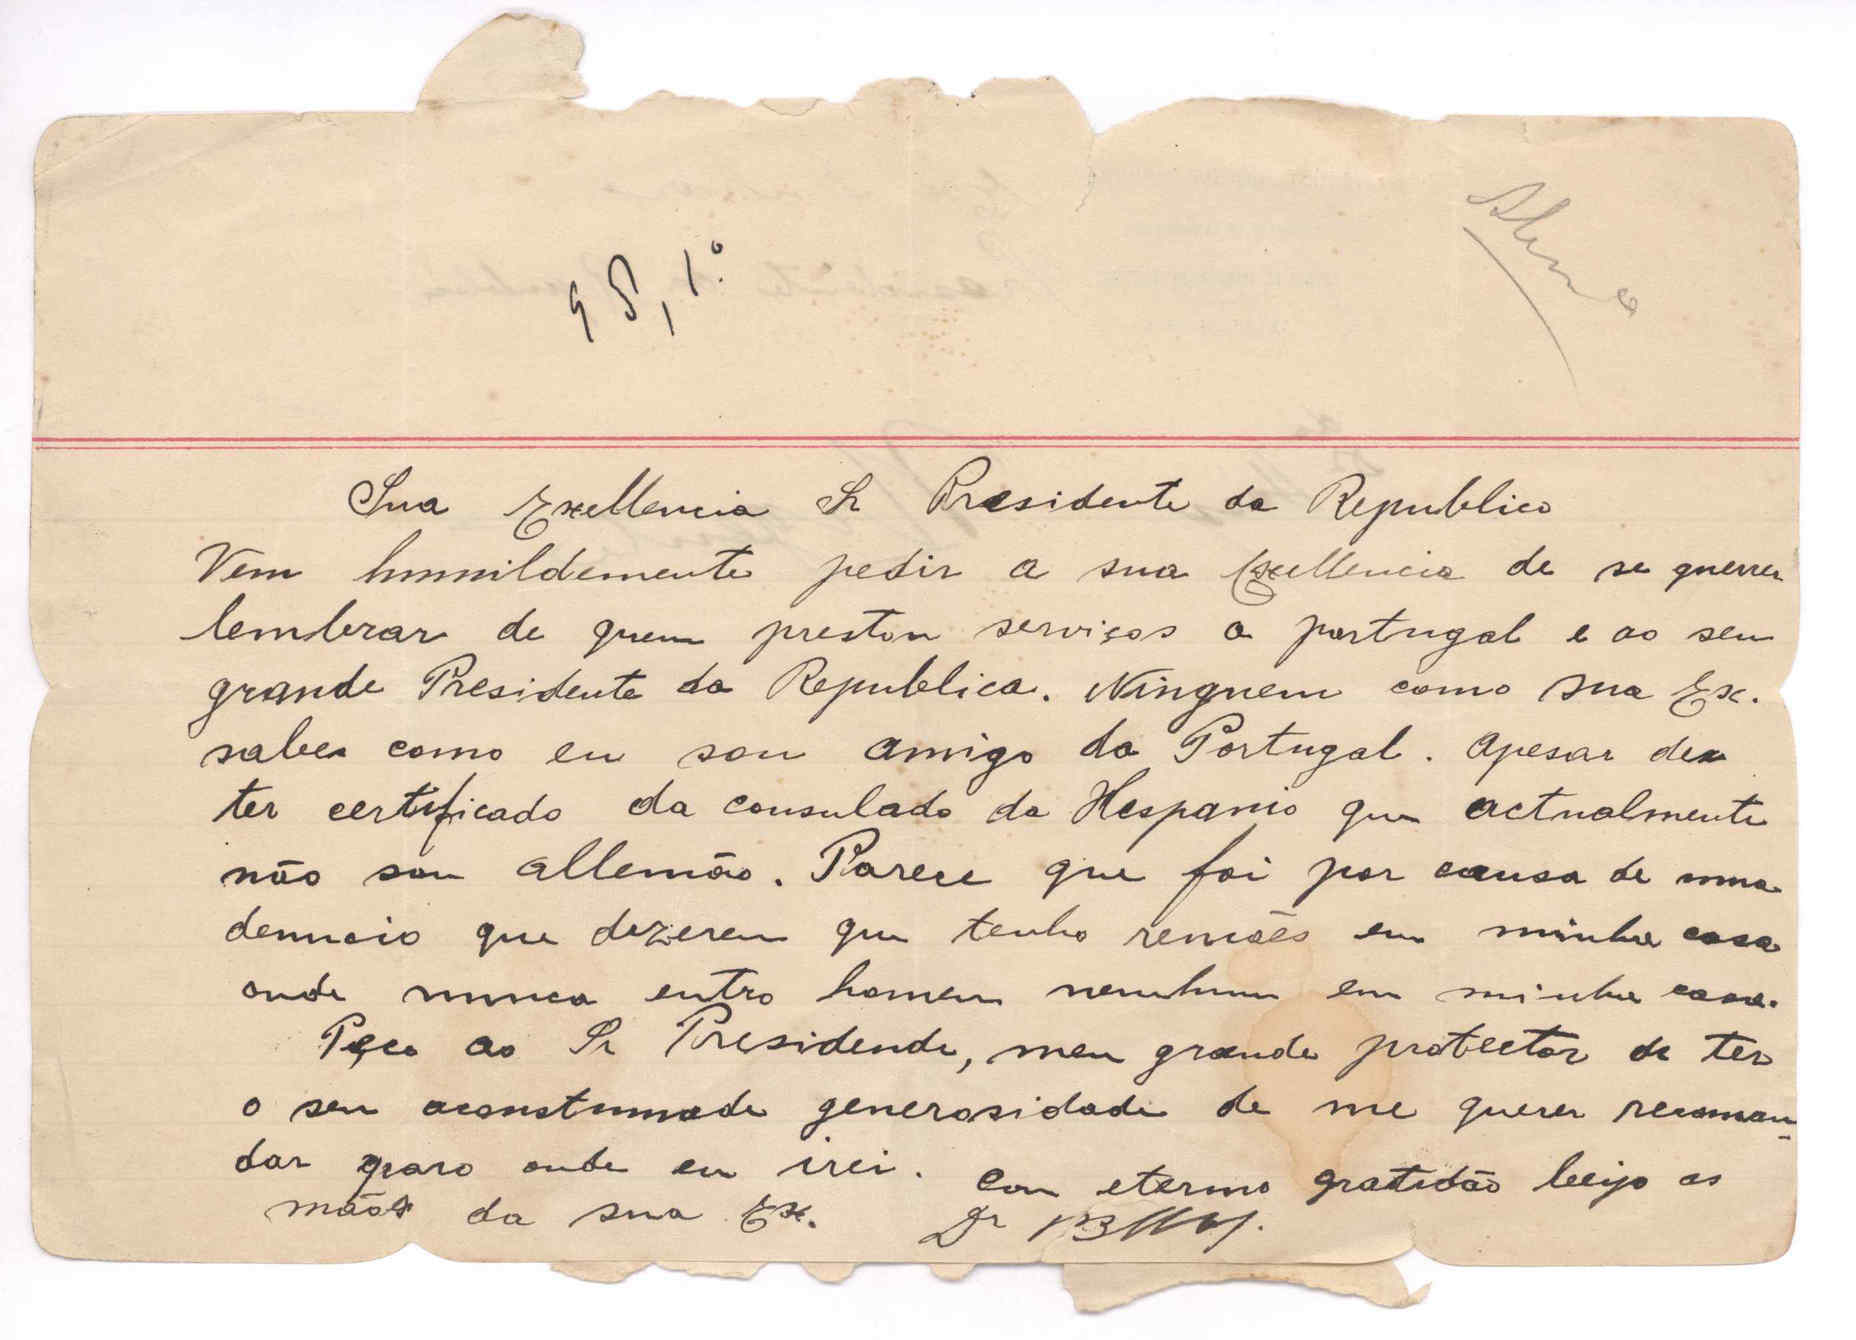 98, 1.º
Sua Exellencia Sr Presidente da Republica
Vem humildemente pedir a sua Exellencia de se querrer
lembrar de quem preston serviços a portugal e ao seu
grande Presidente da Republica. Ninguem como sua Ex.
sabe como eu sou amigo da Portugal. Apesar de
ter certificado da consulado da Hespanio que actualmente
não sou allemão. Parece que foi por causa de uma
denuncio que dizerem que tenho reniões em minha casa
onde nunca entro homem nenhum em minha casa.
Peço ao Sr Presidende, meu grande protector de ter
o seu acoustumade generosidade de me querer recoman-
dar para onde eu irei. Con eterno gratidão beijo as
mãos da sua Ex. Dr